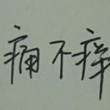 痛不痒